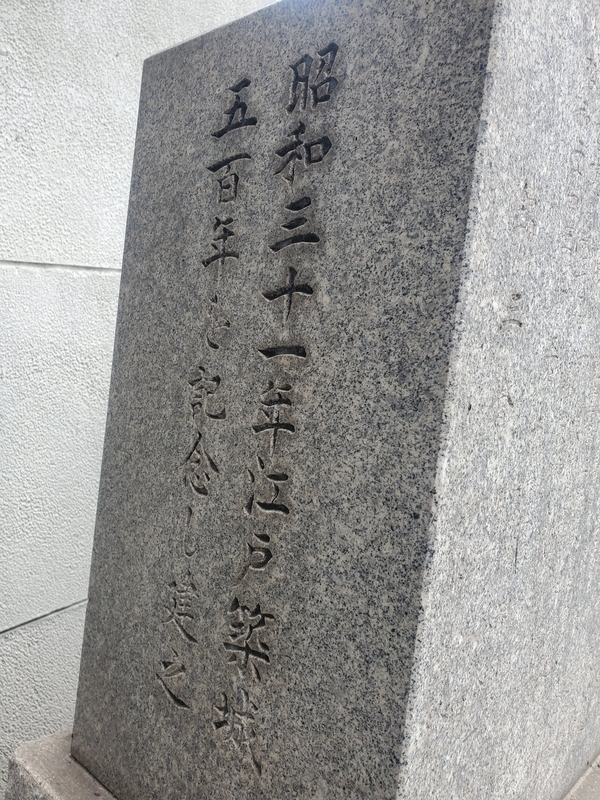 昭和三十一年江戸築城
五百年を記念し建之